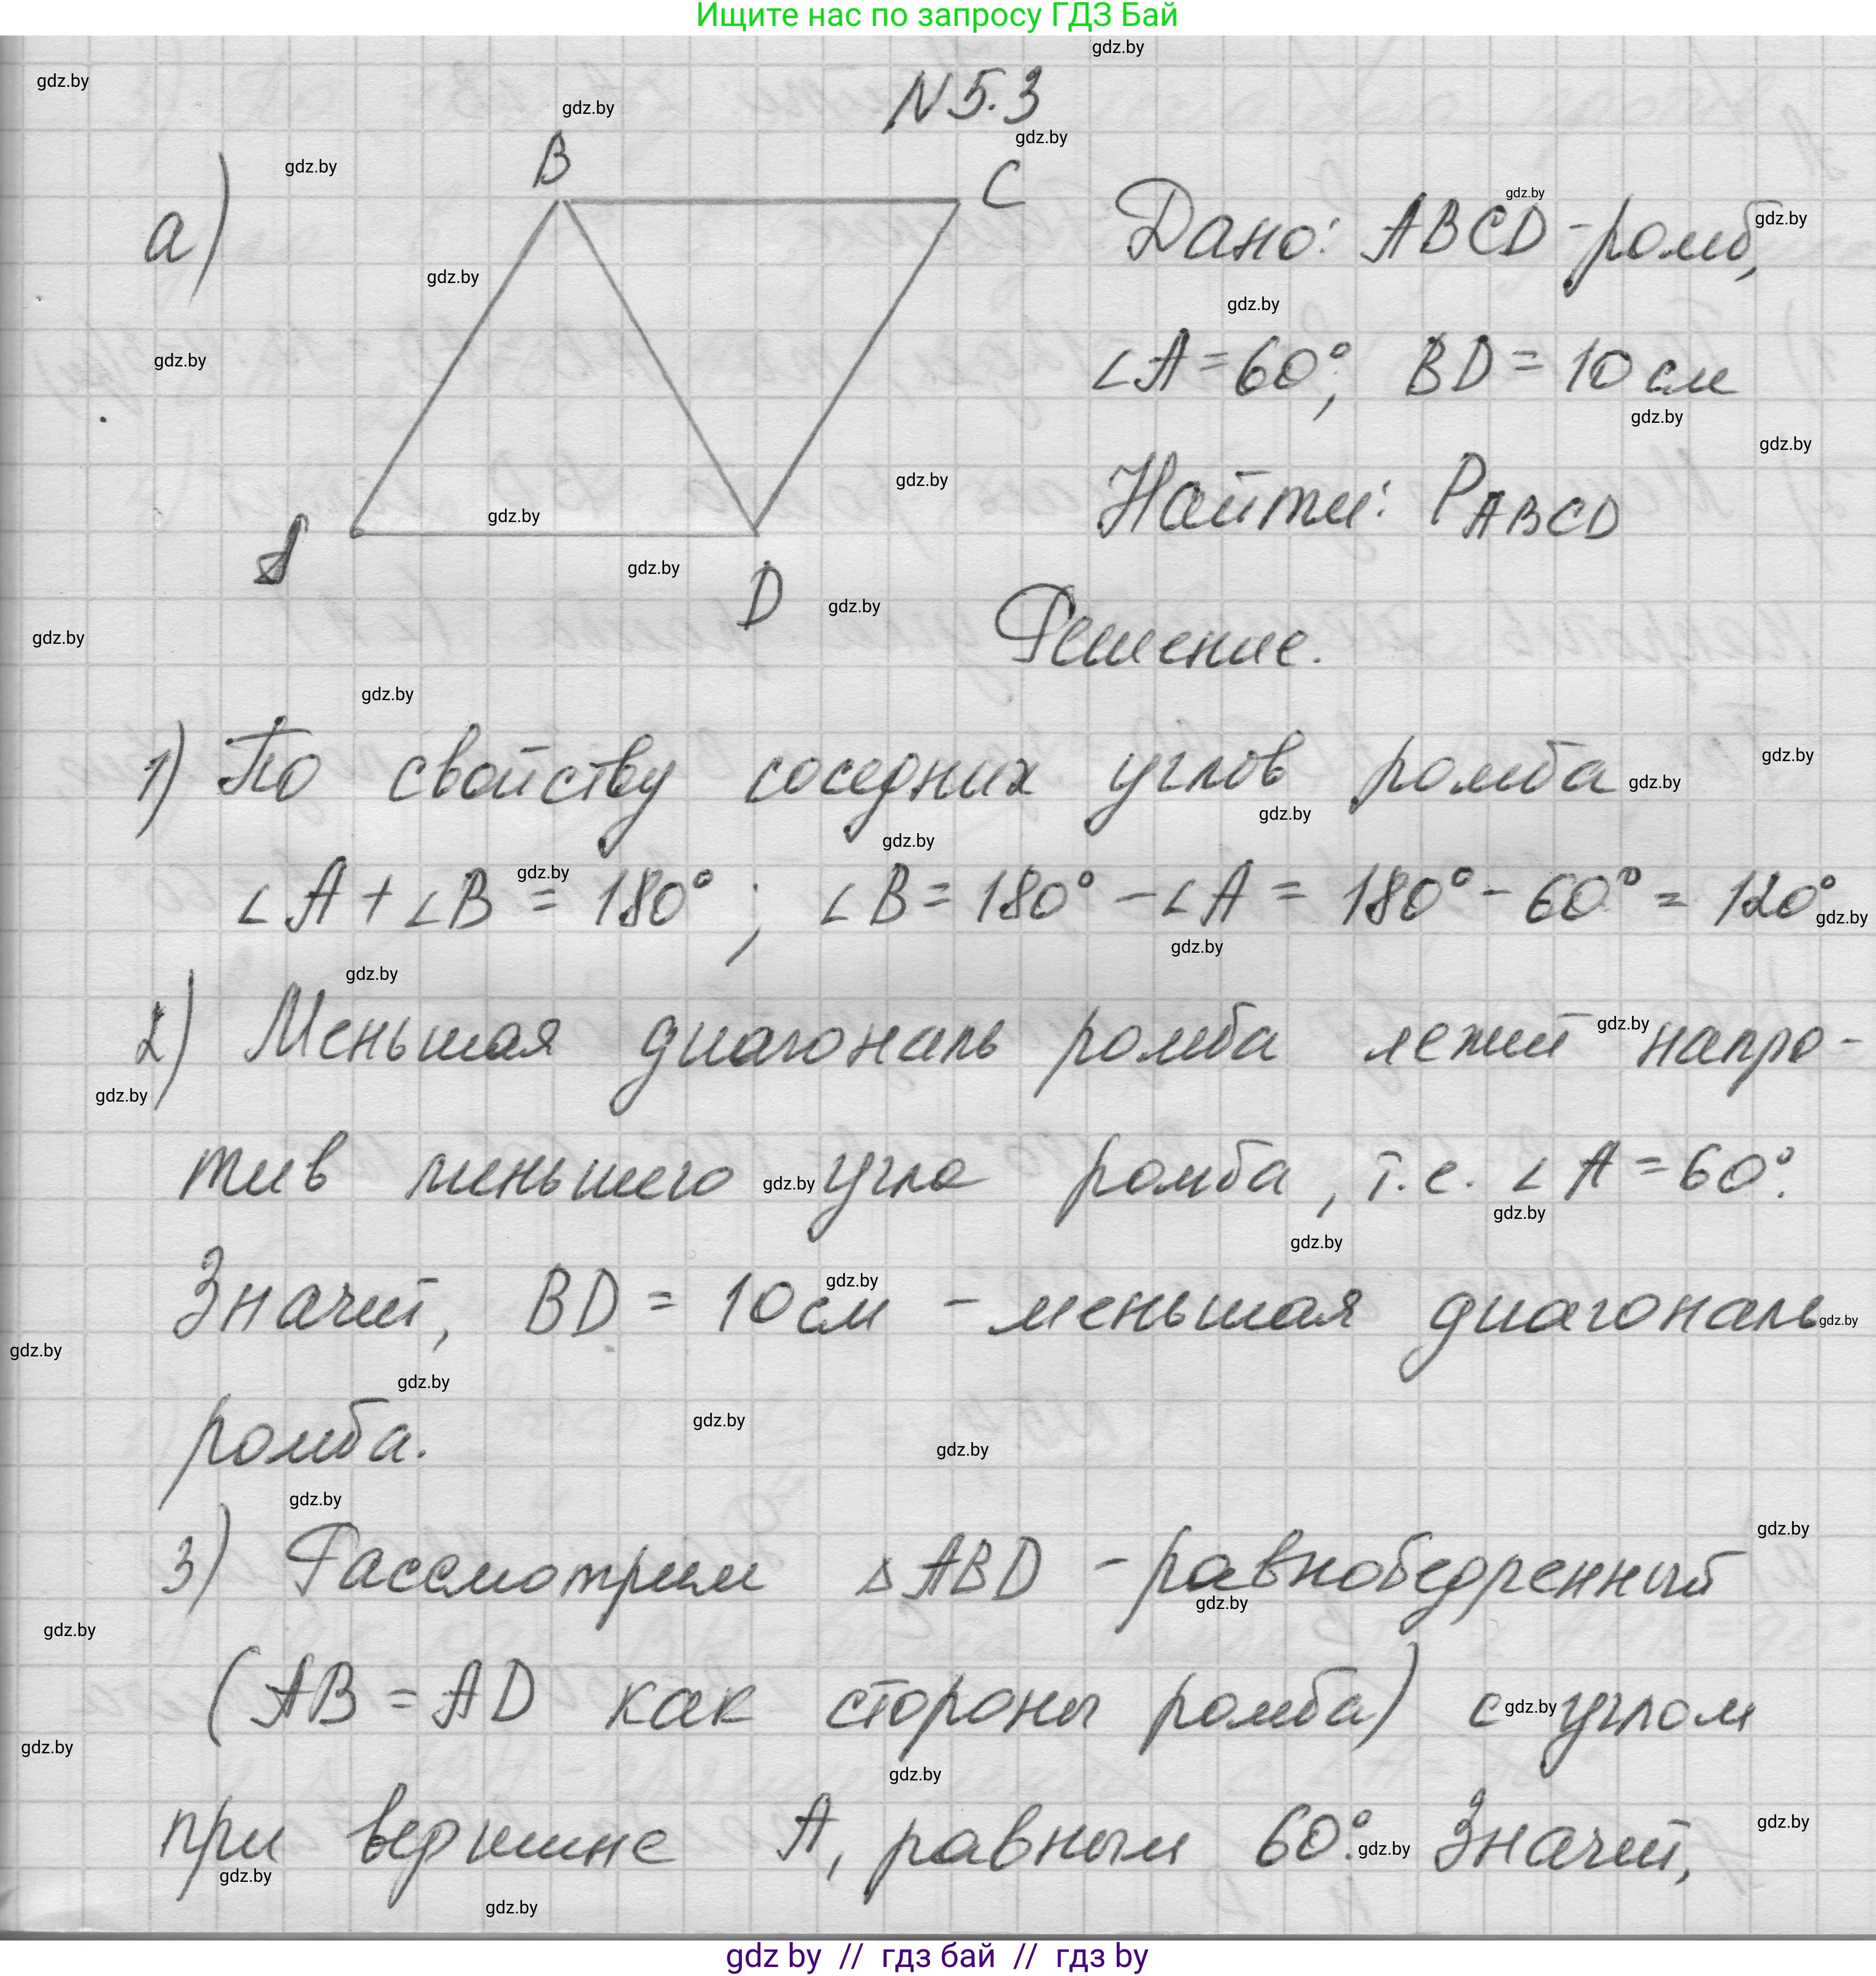 Ищите нас по запросу ГДЗ Бай
N 5.3
а)
B
C
A
D
Дано: ABCD - ромб,
∠A = 60°, BD = 10 см
Найти: P ABCD
Решение.
1) По свойству соседних углов ромба
∠A + ∠B = 180° ; ∠B = 180° - ∠A = 180° - 60° = 120°
2) Меньшая диагональ ромба лежит напро-
тив меньшего угла ромба, т.е. ∠A = 60°.
Значит, BD = 10 см - меньшая диагональ
ромба.
3) Рассмотрим △ABD - равнобедренный
(AB = AD как стороны ромба) с углом
при вершине A, равным 60°. Значит,
gdz by // гдз бай // гдз by